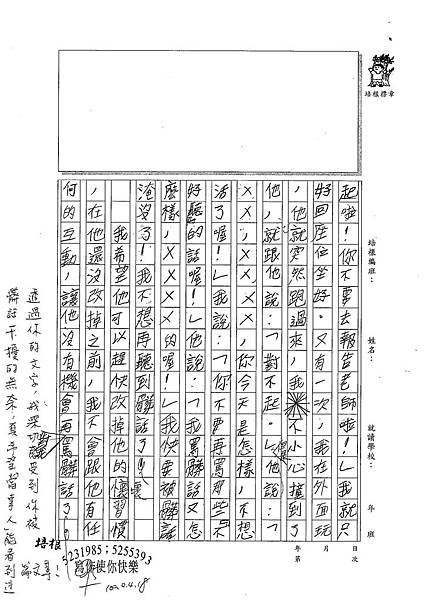 培根標章
培根編班：
姓名：
就讀學校：
年 班
年 月 日
第 次
起啦！你不要去報告老師啦！」我就只
好回座位坐好。又有一次，我在外面玩
，他就突然跑過來，我不小心撞到了
他，就跟他說：「對不起。」他說：「
×××，你今天是怎樣，不想
活了喔！」我說：「你不要再罵那些不
好聽的話喔！」他說：「我罵髒話又怎
麼樣，×××的喔！」我快要被髒話
淹沒了！我不想再聽到髒話了！
我希望他可以趕快改掉他的壞習慣
，在他還沒改掉之前，我不會跟他有任
何的互動，讓他沒有機會再罵髒話了。
透過你的文字，我深切感受到你被
髒話干擾的無奈，真希望當事人能看到這
篇文章！
培根
5231985；5255393
寫作使你快樂
102.04.18